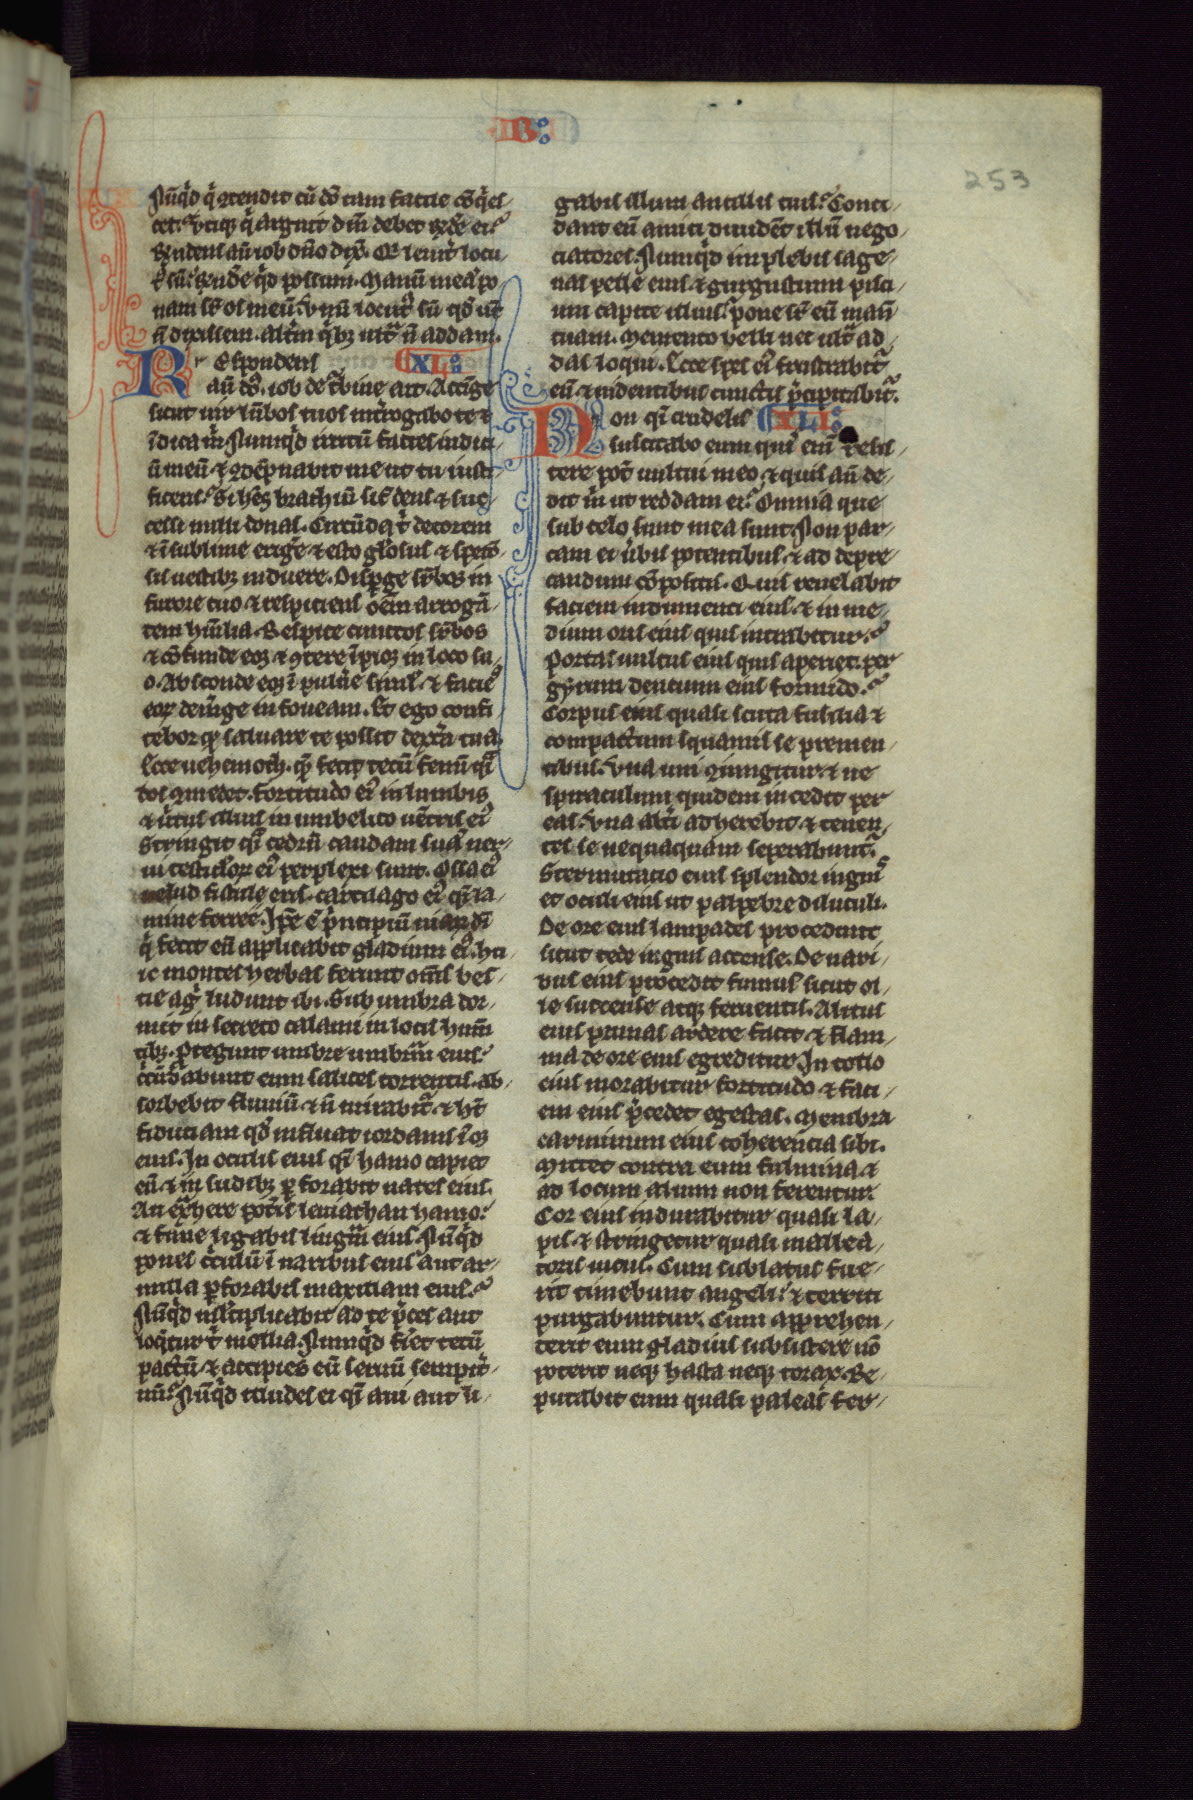 B
253
Nūqd q̄ ↄtendit cū dō tam facile ↄq̇es
cet? Vtiq; q̄ arguit dm̄ debet rn̄dē ei?
Rn̄dens aū iob dn̄o dix̄. Qi leuit̄ locu
t̄ sū? rn̄dē qd possum. Manū meā po
nam sr̄ os meū. Vnū locut̄ sū qd̄ ut̄
n̄ dixissem. altm̄ qb; ult̄ n̄ addam.
Respondens XL
aū dn̄s. iob de t̄bine ait. Accīge
sicut uir lūbos tuos int̄rogabo te ⁊
īdica m̄. Numqd irritū facies iudici
ū meū ⁊ ↄdēpnabis me ut tu iusti
ficeris? Si hēs brachiū sic̄ deus ⁊ si uo
ce sili tonas. Circūda t̄ decorem
⁊ ī sublime erige ⁊ esto gl̄osus ⁊ speciō
sis uestib; induere. Disp̄ge sr̄bos in
furore tuo ⁊ respiciens ōem arrogā
tem hūilia. Respice cunctos sr̄bos
⁊ ↄfunde eos ⁊ ↄtere īpios in loco su
o. Absconde eos ī puluē simul ⁊ facies
eor̄ demīge in foueam. Et ego confi
tebor q̄ saluare te possit dext̄a tua
Ecce uehemoth. q̄ feci tecū fenū q̄i
bos ↄmedet. fortitudo eī in lumbis
⁊ ūtus illius in umbelico uent̄is eī
Stringit q̄i cedrū caudam suā ner
ui testiculor̄ eī perplexi sunt. Ossa eī
uelud fistule eris. cartilago eī q̄i la
mine ferree. Ip̄e ē p̄ncipiū uiar̄ dī
q̄ fecit eū applicabit gladium eī. hu
ic montes herbas ferunt om̄s bes
tie agr̄ ludunt ibi. Sub umbra dor
mit in secreto calami in locis hum̄
tib;. Protegunt umbre umbrā eius?
circūdabunt eum salices torrentis. ab
sorbebit fluuiū ⁊ n̄ mirabit̄ ⁊ ht̄
fiduciam qd̄ influat iordanis ī os
eius. In oculis eius q̄i hamo capiet
eū ⁊ in sudib; p̄forabit nares eius.
An ext̄here pot̄is leuiathan hamo?
⁊ fune ligabis linguā eius. Nūqd
pones circulū ī naribus eius aut ar
milla p̄forabis maxillam eius?
Nūqd ml̄tiplicabit ad te p̄ces aut
loq̄tur t̄ mollia. Numqd feriet tecū
pactū ⁊ accipies eū seruū sempit̄
nū? Nūqd illudes ei q̄i aui aut li
gabis illum ancillis tuis? Conci
dant eū amici diuidēt illū nego
ciatores. Numqd implebis sage
nas pelle eius ⁊ gurgustium pisci
um capite illius? pone sr̄ eū man̄
tuam. Memento belli nec ult̄ ad
das loqui. Ecce spes eī frustrabit̄
eū ⁊ uidentibus cunctis p̄cipitabit̄.
Non q̄i crudelis XLI
suscitabo eum quis eni resis
tere pot̄ uultui meo ⁊ quis an̄ de
dit m̄ ut reddam ei? Omnia que
sub celo sunt mea sunt. Non par
cam ei ūbis potentibus ⁊ ad depre
candum ↄpositis. Quis reuelabit
faciem indumenti eius ⁊ in me
dium oris eius quis intrabitur?
Portas uultus eius quis aperiet. per
gyrum dentium eius formido?
Corpus eius quasi scuta fusilia ⁊
compactum squamis se premen
tibus. Vna uni ↄiungitur ⁊ ne
spiraculum quidem incedit per
eas. Vna alt̄i adherebit ⁊ tenen
tes se nequaquam seperabunt̄.
Sternutacio eius splendor ingnis
et oculi eius ut palpebre diluculi.
De ore eius lampades procedunt
sicut tede ingnis accense. De nari
bus eius procedit fumus sicut ol
le succense atq; feruentis. Alitus
eius prunas ardere facit ⁊ flam
ma de ore eius egreditur. In collo
eius morabitur fortitudo ⁊ faci
em eius p̄cedet egestas. Menbra
carnium eius coherencia sibi.
Mittet contra eum fulmina ⁊
ad locum alium non ferentur.
Cor eius indurabitur quasi la
pis ⁊ stringetur quasi mallea
toris incus. Cum sublatus fue
rit timebunt angeli ⁊ territi
purgabuntur. Cum apprehen
derit eum gladius subsistere nō
poterit neq; hasta neq; torax. Re
putabit eum quasi paleas fer